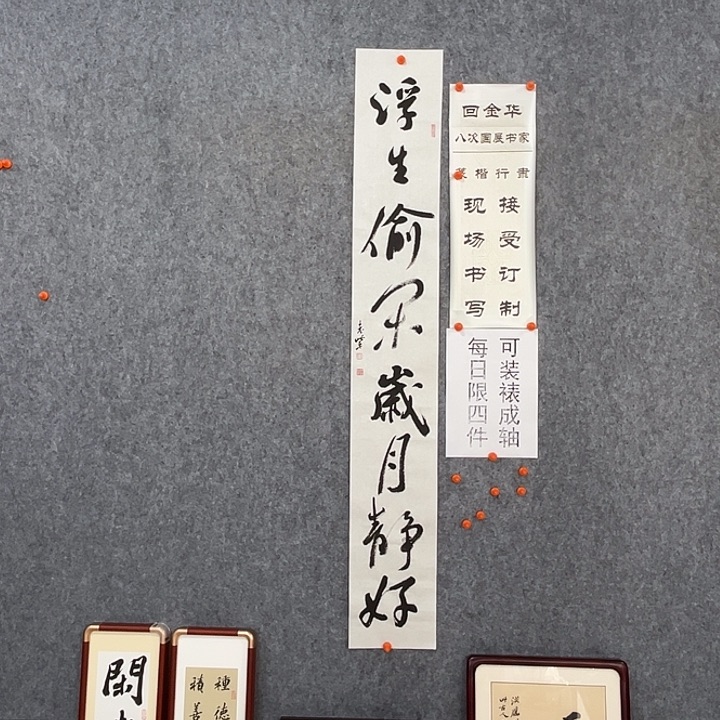 浮生偷闲歲月静好
回金华
八次国展书家
楷行
接受订制
现场书写
可装裱成轴
每日限四件
閑
種德
積善